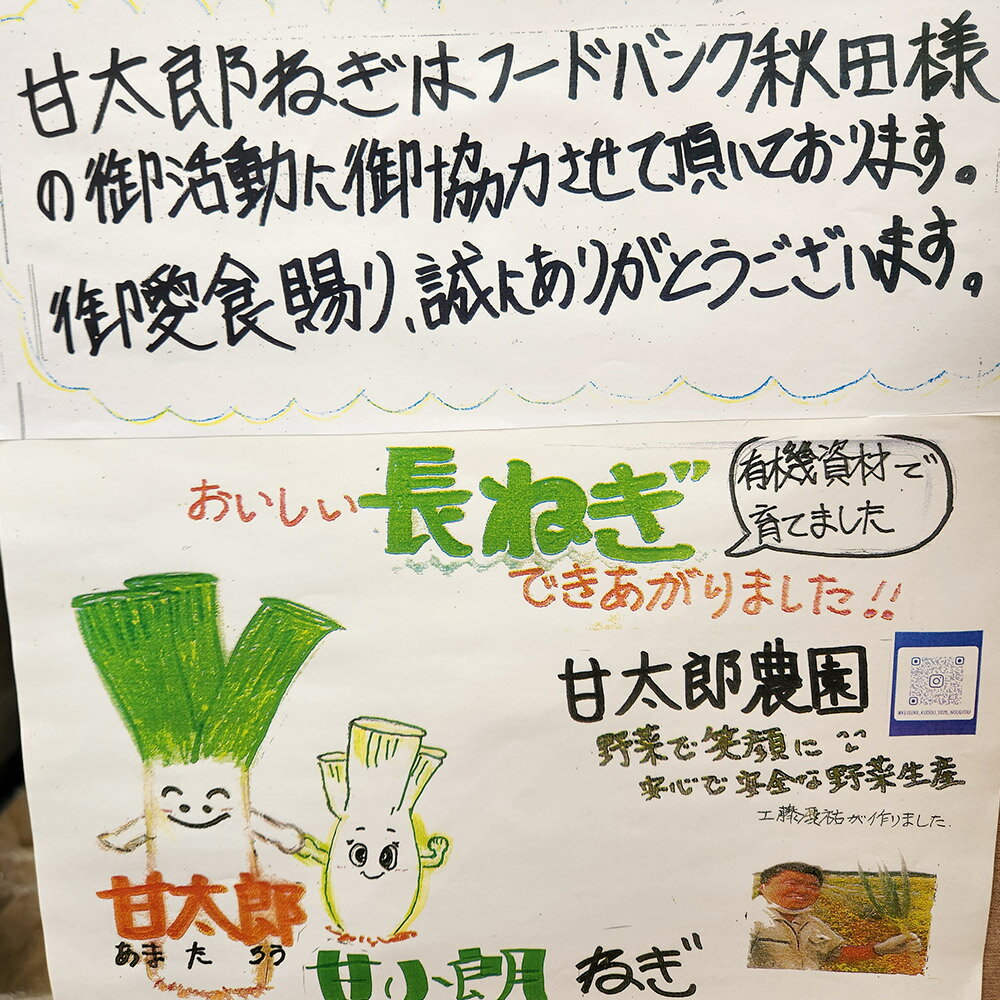 甘太郎ねぎはフードバンク秋田様
の御活動に御協力させて頂いております。
御愛食賜り、誠にありがとうございます。
おいしい長ねぎ
有機資材で
育てました
できあがりました!!
甘太郎農園
野菜で笑顔に
安心で安全な野菜生産
が作りました.
甘太郎
あまたろう
甘小朗 ねぎ